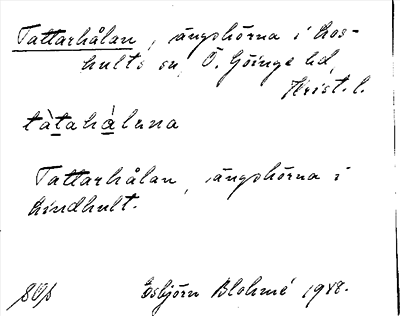 Tattarhålan, ängshörna i Los-
hults sn, Ö. Göinge hd,
Krist. l.
tàtahàlana
Tattarhålan, ängshörna i
Kindhult.
Esbjörn Blohmé 1948.